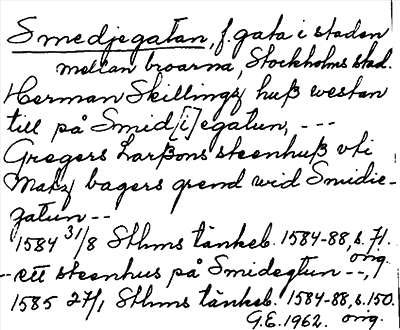 Smedjegatan, f. gata i staden
mellan broarna, Stockholms stad.
Herman Skillingz huß westan
till på Smid[i]egatun, ---
Gregers Larßons steenhuß vti
Matz bagers grend wid Smidie-
gatun --
1584 31/8 Sthms tänkeb. 1584-88, s. 71.
orig.
-- ett steenhus på Smidegtun --,
1585 27/1 Sthms tänkeb. 1584-88, s. 150.
G.E. 1962. orig.